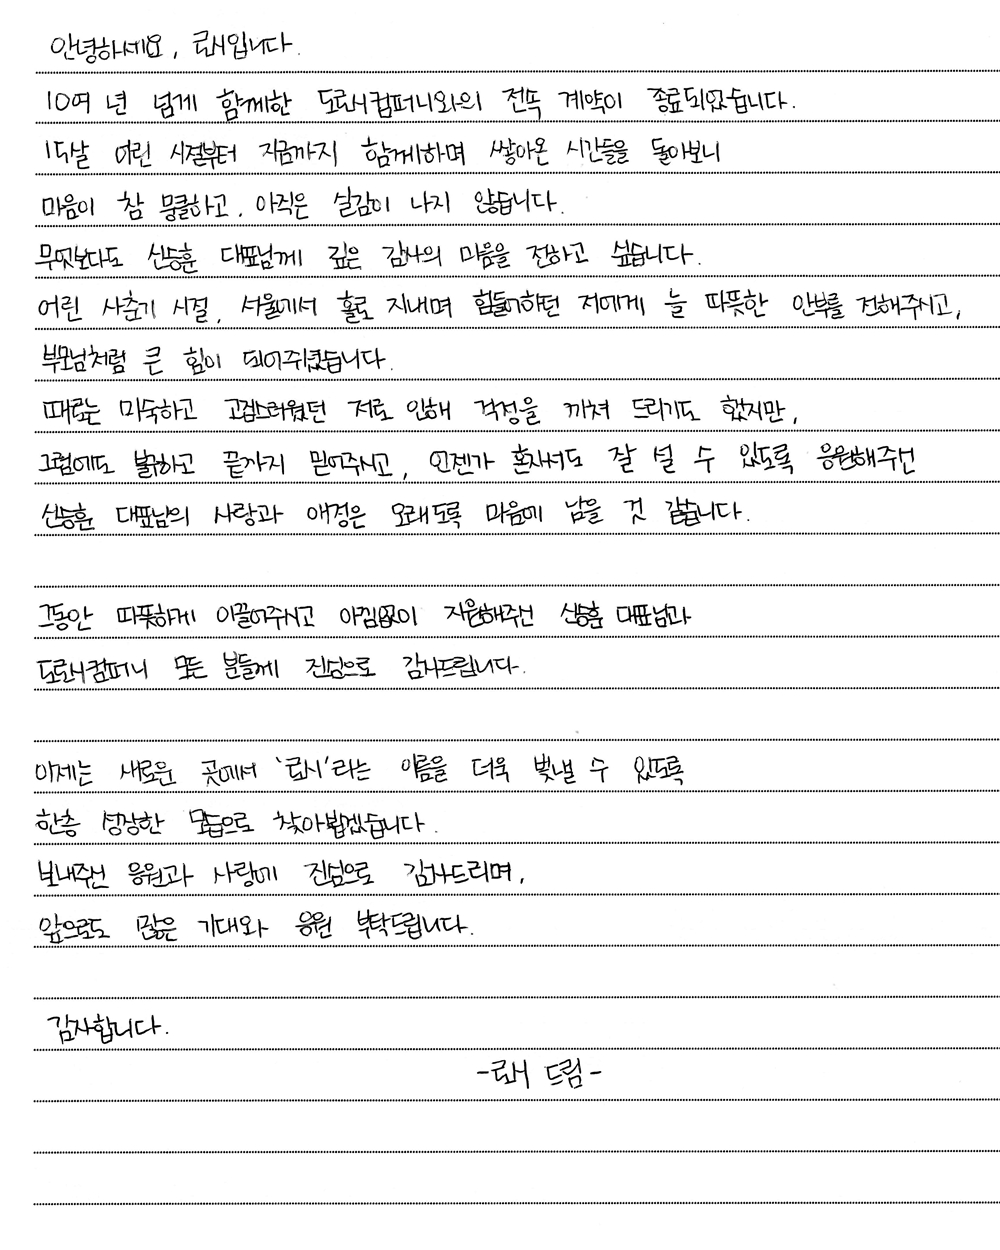 안녕하세요, 로시입니다.
10여 년 넘게 함께한 도로시컴퍼니와의 전속 계약이 종료되었습니다.
15살 어린 시절부터 지금까지 함께하며 쌓아온 시간들을 돌아보니
마음이 참 뭉클하고, 아직은 실감이 나지 않습니다.
무엇보다도 신승훈 대표님께 깊은 감사의 마음을 전하고 싶습니다.
어린 사춘기 시절, 서울에서 홀로 지내며 힘들어하던 저에게 늘 따뜻한 안부를 전해주시고,
부모님처럼 큰 힘이 되어주셨습니다.
때로는 미숙하고 고집스러웠던 저로 인해 걱정을 끼쳐 드리기도 했지만,
그럼에도 묵묵하고 끝까지 믿어주시고, 언젠가 혼자서도 잘 설 수 있도록 응원해주신
신승훈 대표님의 사랑과 애정은 오래도록 마음에 남을 것 같습니다.
그동안 따뜻하게 이끌어주시고 아낌없이 지원해주신 신승훈 대표님과
도로시컴퍼니 모든 분들께 진심으로 감사드립니다.
이제는 새로운 곳에서 '로시'라는 이름을 더욱 빛낼 수 있도록
한층 성장한 모습으로 찾아뵙겠습니다.
보내주신 응원과 사랑에 진심으로 감사드리며,
앞으로도 많은 기대와 응원 부탁드립니다.
감사합니다.
-로시 드림-